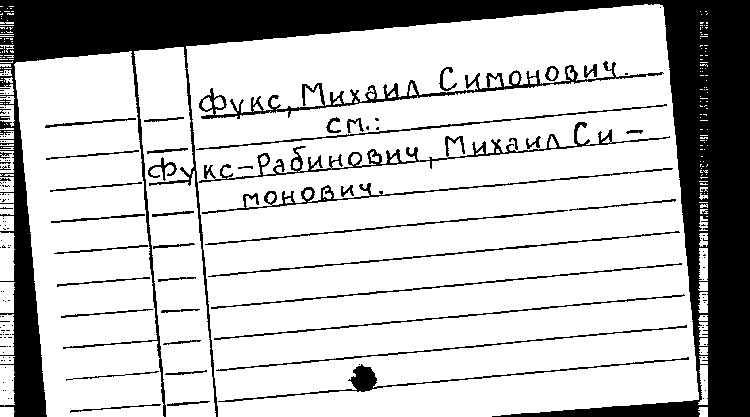 Фукс, Михаил Симонович.
см.:
Фукс-Рабинович, Михаил Си-
монович.